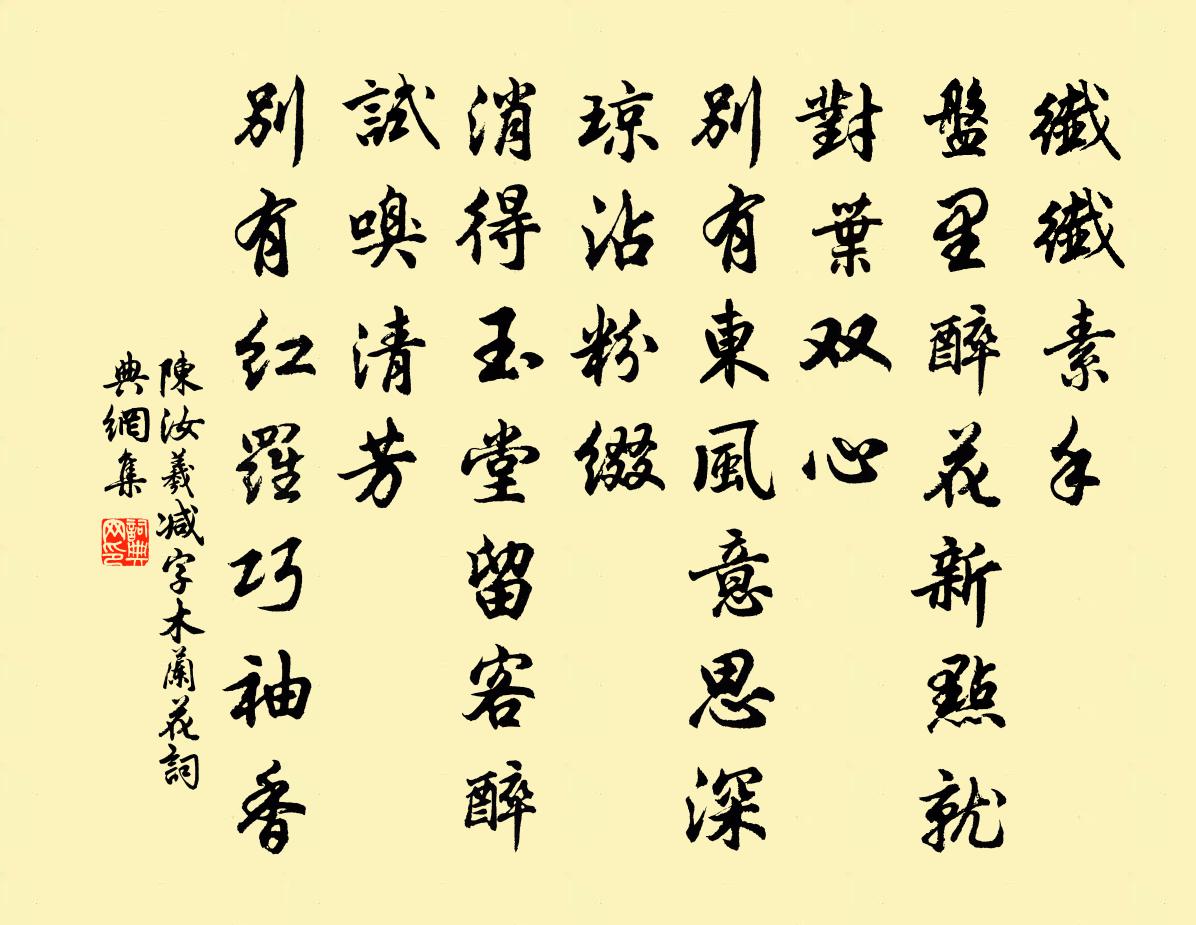 纖纖素手
盤里醉花新點就
對葉双心
別有東風意思深
琼沾粉缀
消得玉堂留客醉
試嗅清芳
別有红羅巧袖香
陳汝羲减字木蘭花詞
典網集
詞典
网印